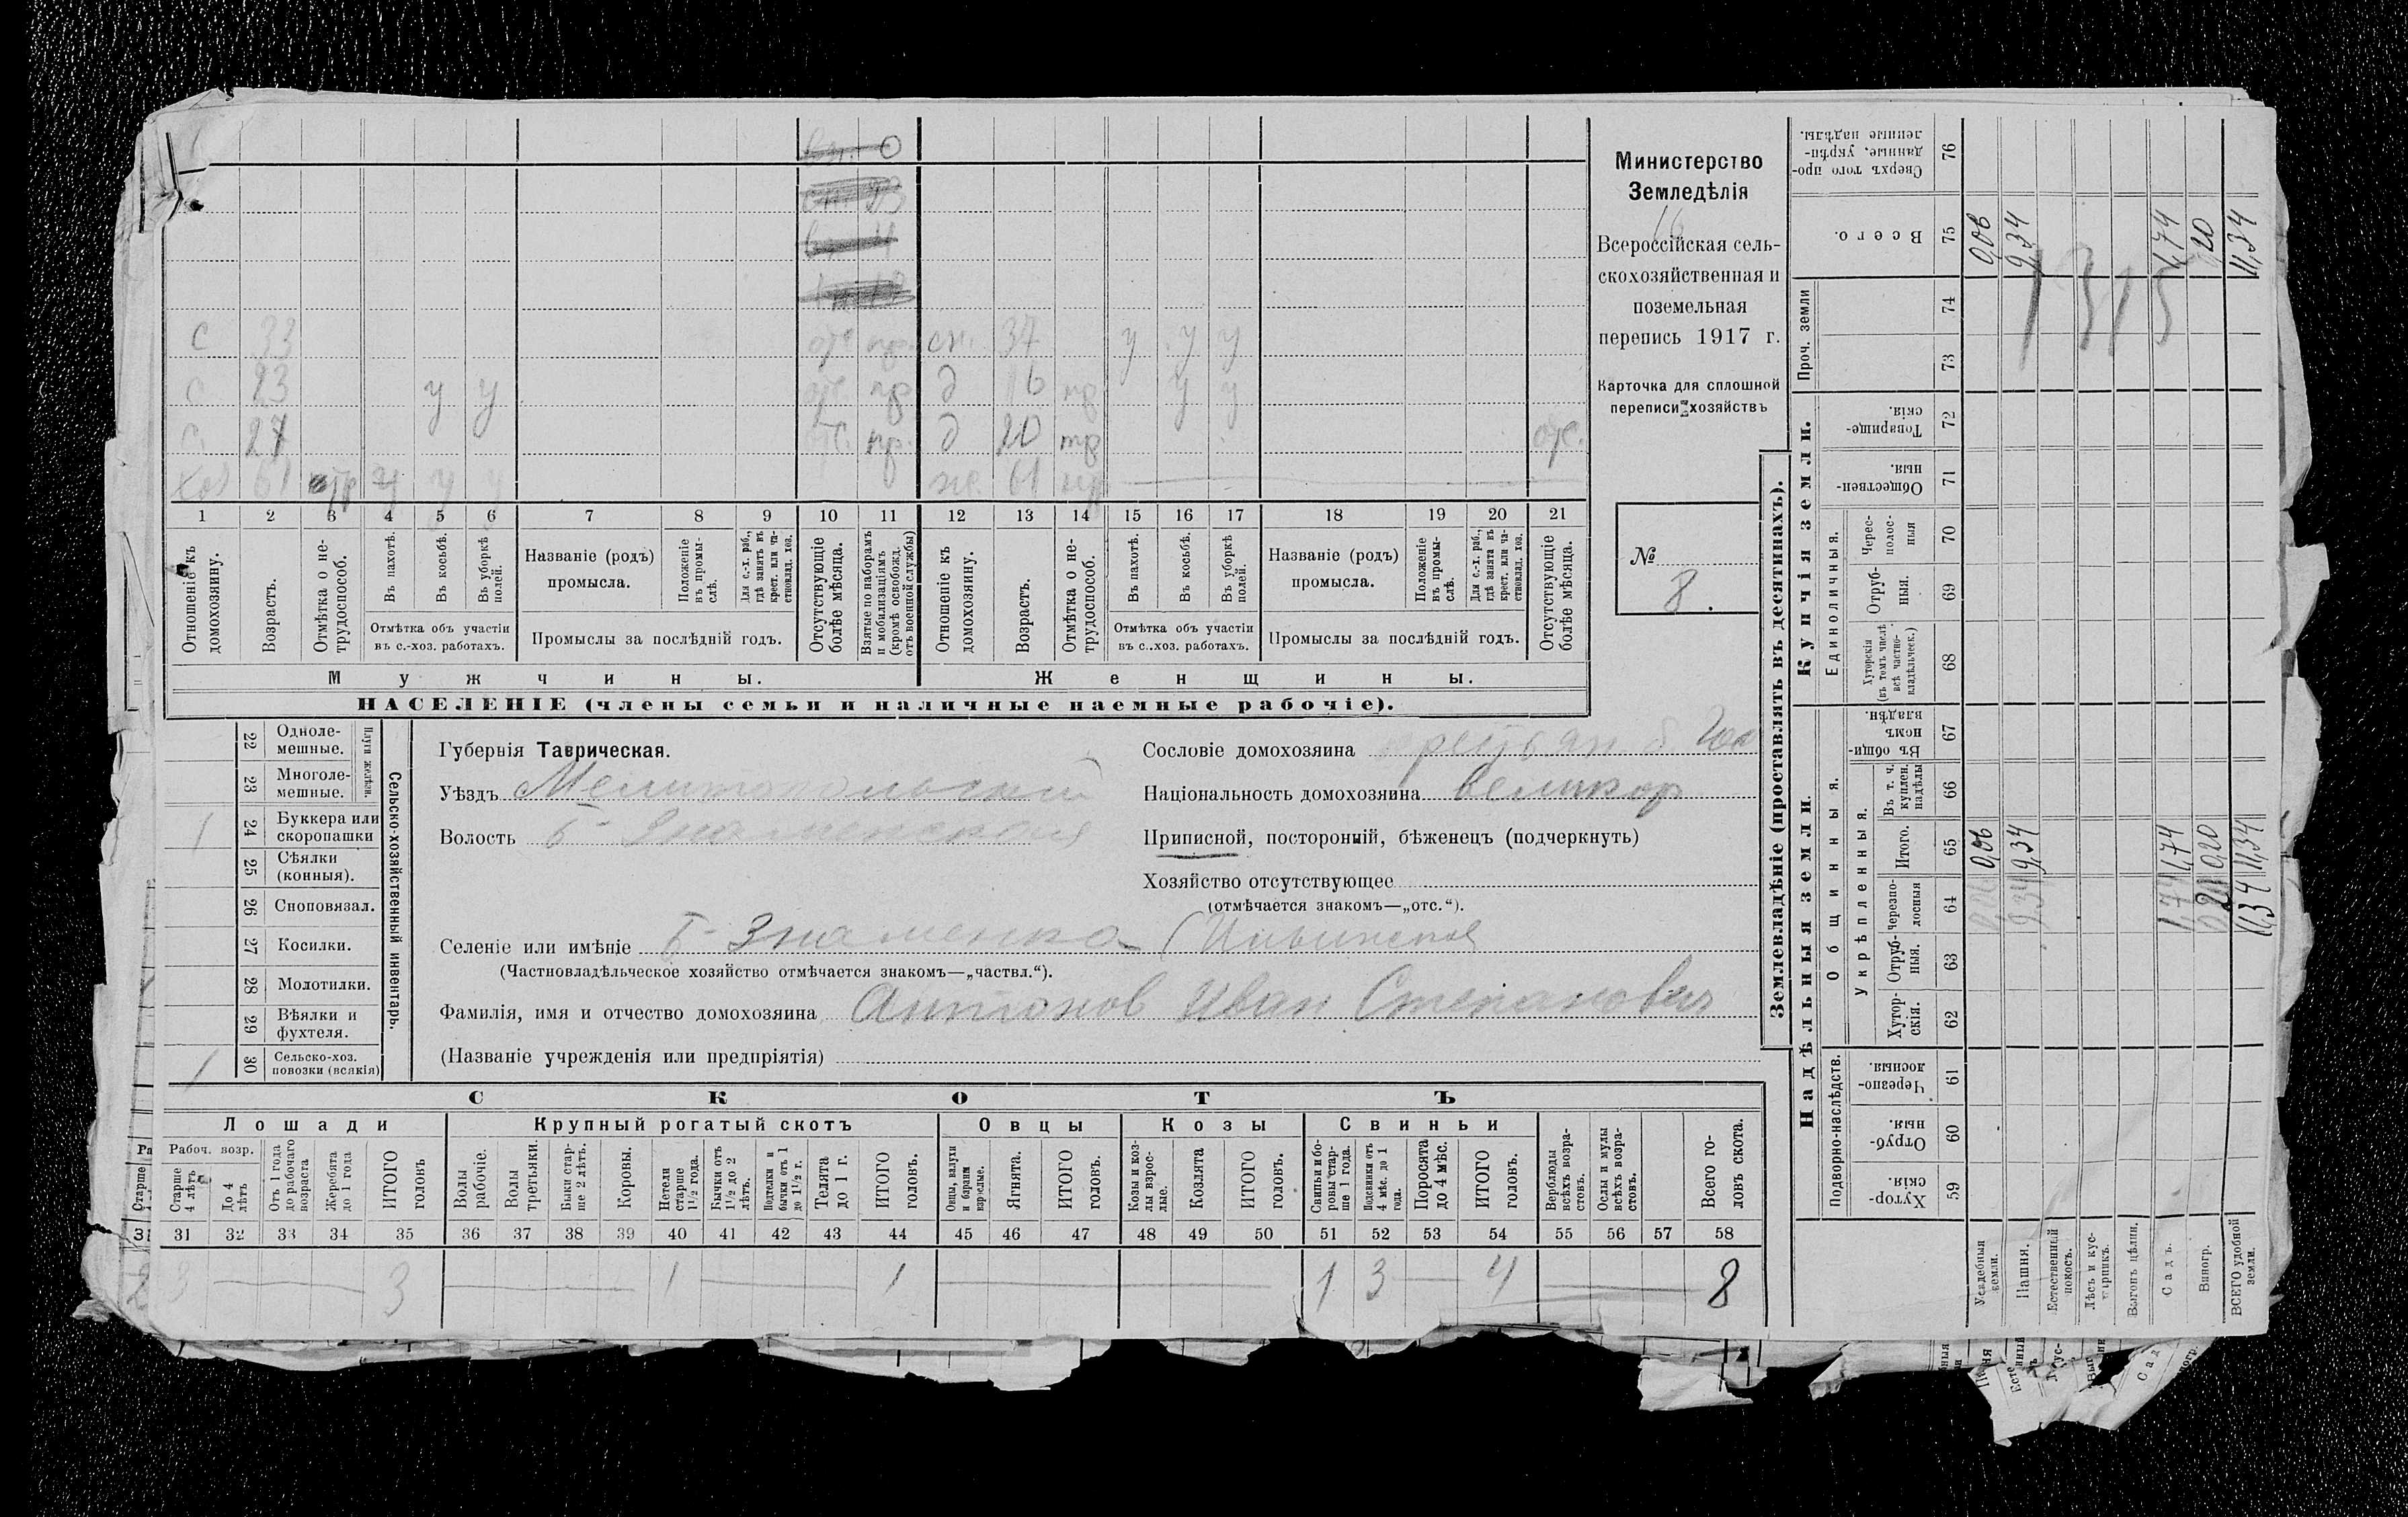 Министерство
Земледѣлія
16
Всероссійская сель-
скохозяйственная и
поземельная
перепись 1917 г.
Карточка для сплошной
переписи хозяйствъ
№
8.
с 33 отс пр. сн. 37 у у у
с 23 у у отс. пр д 16 пр у у
с. 27 отс. пр. д 20 отс.
хоз 61 у у у же. 61
1 2 3 4 5 6 7 8 9 10 11 12 13 14 15 16 17 18 19 20 21
Отношеніе къ домохозяину.
Возрастъ.
Отмѣтка о не-трудоспособ.
Въ пахотѣ.
Въ косьбѣ.
Въ уборкѣ полей.
Отмѣтка объ участіи въ с.-хоз. работахъ.
Названіе (родъ) промысла.
Положеніе въ промы-слѣ.
Для с.-х. раб., гдѣ занятъ въ крест. или ча-стновлад. хоз.
Промыслы за послѣдній годъ.
Отсутствующіе болѣе мѣсяца.
Взятые по наборамъ и мобилизаціямъ (кромѣ освобожд. отъ военной службы)
Отношеніе къ домохозяину.
Возрастъ.
Отмѣтка о не-трудоспособ.
Въ пахотѣ.
Въ косьбѣ.
Въ уборкѣ полей.
Отмѣтка объ участіи въ с..хоз. работахъ.
Названіе (родъ) промысла.
Положеніе въ промы-слѣ.
Для с.-х. раб., гдѣ занята въ крест. или ча-стновлад. хоз.
Промыслы за послѣдній годъ.
Отсутствующіе болѣе мѣсяца.
Мужчины. Женщины.
НАСЕЛЕНІЕ (члены семьи и наличные наемные рабочіе).
Сельско-хозяйственный инвентарь.
Плуги желѣзн.
22 Одноле-мешные.
23 Многоле-мешные.
1 24 Буккера или скоропашки
25 Сѣялки (конныя).
26 Сноповязал.
27 Косилки.
28 Молотилки.
29 Вѣялки и фухтеля.
1 30 Сельско-хоз. повозки (всякія)
Губернія Таврическая.
Уѣздъ Мелитопольский
Волость Б-Знаменская
Селеніе или имѣніе Б-Знаменка
(Частновладѣльческое хозяйство отмѣчается знакомъ—„частвл.“).
Фамилія, имя и отчество домохозяина Антонов Иван Степанович
(Названіе учрежденія или предпріятія)
Сословіе домохозяина крестьян.
Національность домохозяина великор
Приписной, посторонній, бѣженецъ (подчеркнуть)
Хозяйство отсутствующее
(отмѣчается знакомъ—„отс.“).
СКОТЪ
Лошади Крупный рогатый скотъ Овцы Козы Свиньи
Рабоч. возр.
Старше 4 лѣтъ
До 4 лѣтъ
Отъ 1 года до рабочаго возраста
Жеребята до 1 года
ИТОГО головъ
Волы рабочіе.
Волы третьяки.
Быки стар-ше 2 лѣтъ.
Коровы.
Нетели старше 1½ года.
Бычки отъ 1½ до 2 лѣтъ.
Подтелки и бычки отъ 1 до 1½ г.
Телята до 1 г.
ИТОГО головъ.
Овцы, валухи и бараны взрослые.
Ягнята.
ИТОГО головъ.
Козы и коз-лы взрос-лые.
Козлята
ИТОГО головъ.
Свиньи и бо-ровы стар-ше 1 года.
Подсвинки отъ 4 мѣс. до 1 года.
Поросята до 4 мѣс.
ИТОГО головъ.
Верблюды всѣхъ возра-стовъ.
Ослы и мулы всѣхъ возра-стовъ.
Всего го-ловъ скота.
31 32 33 34 35 36 37 38 39 40 41 42 43 44 45 46 47 48 49 50 51 52 53 54 55 56 57 58
3 3 1 1 1 3 4 8
Землевладѣніе (проставлять въ десятинахъ).
Надѣльныя земли.
Купчія земли.
Подворно-наслѣдств.
Общинныя.
Укрѣпленныя.
Единоличныя.
Проч. земли
59 Хутор-скія.
60 Отруб-ныя.
61 Черезпо-лосныя.
62 Хутор-скія.
63 Отруб-ныя.
64 Черезпо-лосныя
65 Итого.
66 Въ т. ч. куплен. надѣлы
67 Въ общи-номъ владѣн.
68 Хуторскія (въ томъ числѣ всѣ частно-владѣльческ.)
69 Отруб-ныя.
70 Черес-полос-ныя
71 Обществен-ныя.
72 Товарище-скія.
73
74
75 Всего.
76 Сверхъ того про-данные, укрѣп-ленные надѣлы.
Усадебныя земли. 0,06 0,06
Пашня. 9,34 9,34 9,34
Естественный покосъ.
Лѣсъ и кус-тарникъ.
Выгонъ цѣлин.
Садъ. 1,74 1,74 1,74
Виногр. 0,20 0,20 0,20
ВСЕГО удобной земли. 11,34 11,34 11,34